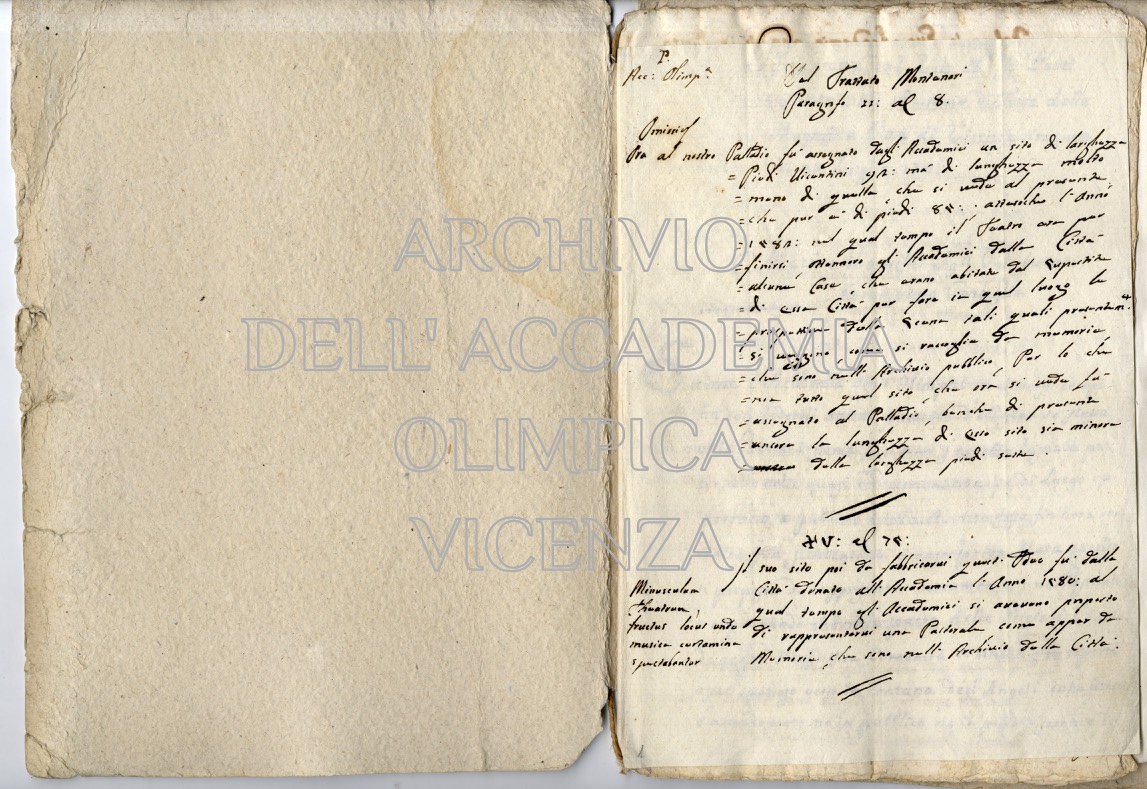 P.
Acc: Olimp.ᵃ
Dal Trattato Montanari
Paragrafo II: al 8.
Omissis
Ora al nostro Palladio fù assegnato dagli Accademici un sito di larghezza
= Piedi Vicentini 92: mà di lunghezza molto
= meno di quella, che si vede al presente,
= che pur è di piedi 85: attesochè l'Anno
= 1582: nel qual tempo il Teatro era per
= finirsi ottennero gli Accademici dalla Città
= alcune Case, che erano abitate dal
= di essa Città per fare in quel luogo le
= prospettive della Scena tali quali presentem.ᵉ
= si vengono, come si raccoglie da memorie
= che sono nell'Archivio pubblico, Per lo che
= non tutto quel sito, che ora si vede fù
= assegnato al Palladio, benchè di presente
= ancora la lunghezza di esso sito sia minore
= della larghezza piedi sette.
XV: al 75:
Il suo sito poi da fabbricarvi questi due fù dalla
Città donato all'Accademia l'Anno 1580: al
qual tempo gli Accademici si avevano proposto
di rappresentarvi una Pastorale come appar da
Memorie, che sono nell'Archivio della Città.
Minusculum
Theatrum,
fructus locus unde
musica certamina
spectabantur
ARCHIVIO
DELL'ACCADEMIA
OLIMPICA
VICENZA